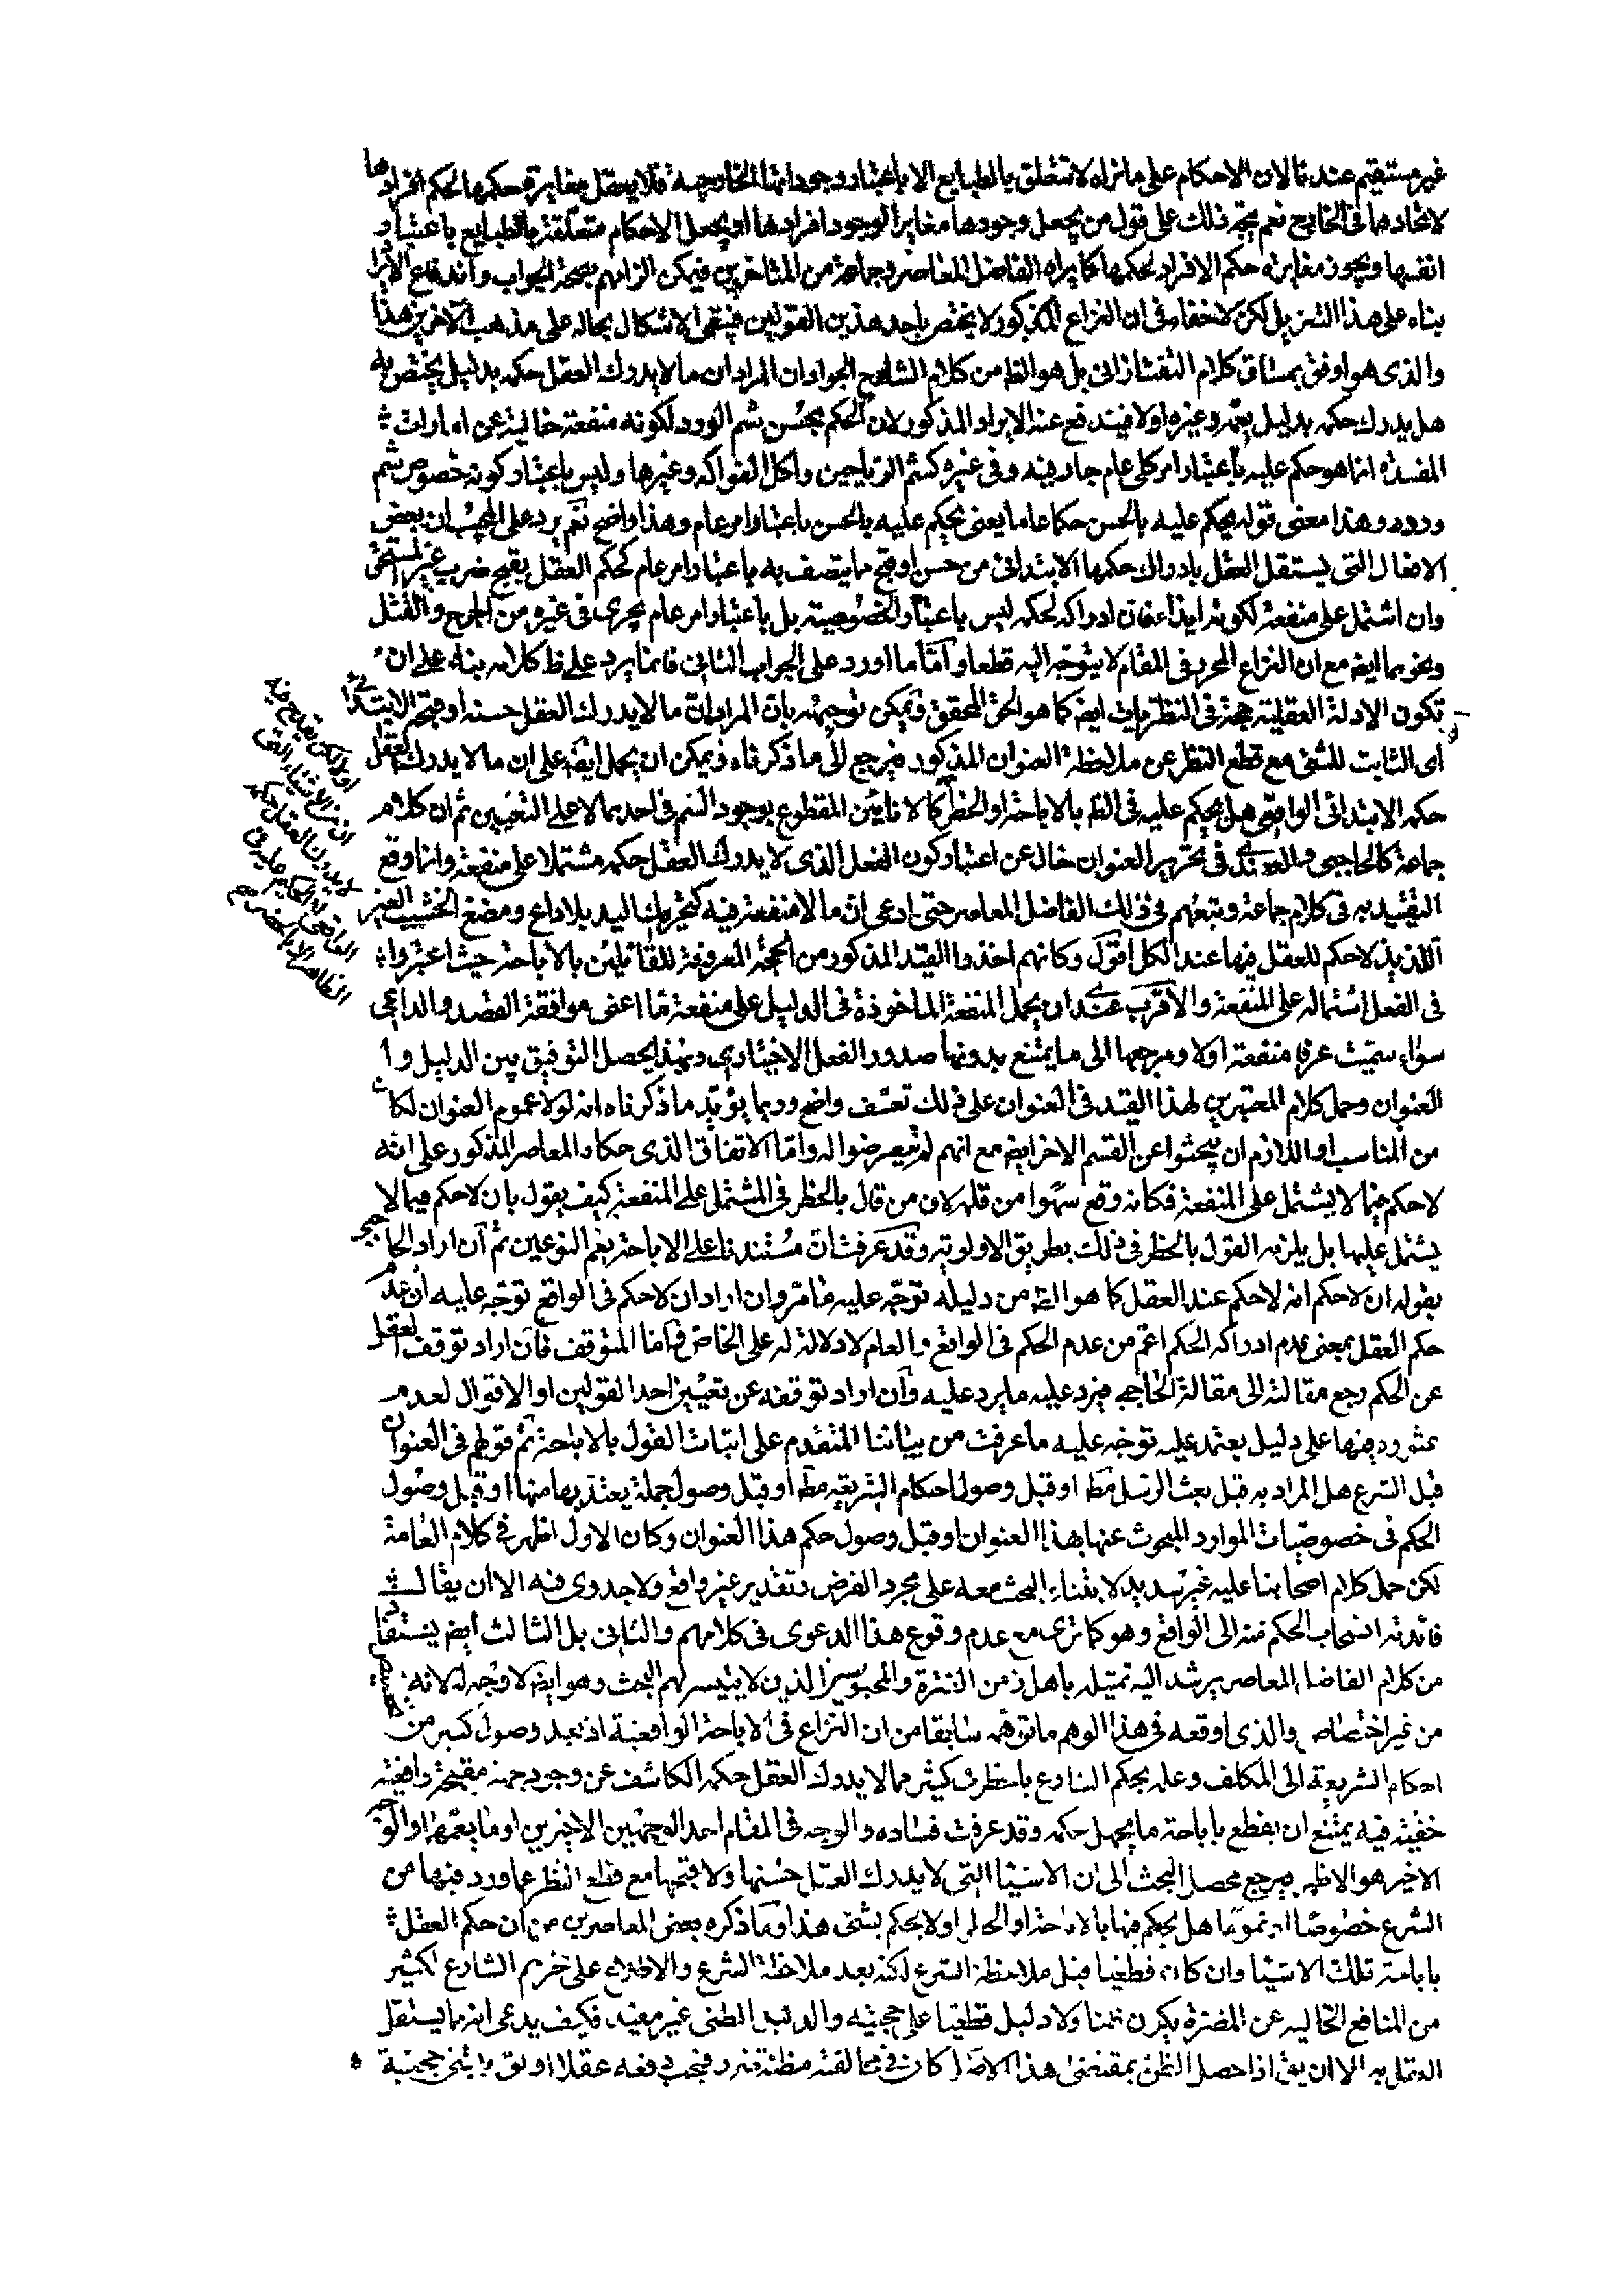 غير مستقيم عندنا لان الاحكام على ما نراه لا تتعلق بالطبايع الا باعتبار وجوداتها الخارجية فلا يعقل مغايرة حكمها لحكم افرادها
لاتحادهما فى الخارج نعم يتجه ذلك على قول من يجعل وجودها مغايرا لوجود افرادها او يجعل الاحكام متعلقة بالطبايع باعتبار
انفسها ويجوز مغايرة حكم الافراد لحكمها كما يراه الفاضل المعاصر وجماعة من المتاخرين فيمكن الزامهم بصحة الجواب واندفاع الايراد
بناء على هذا التنزيل لكن لا خفاء فى ان النزاع المذكور لا يختص باحد هذين القولين فيبقى الاشكال بحاله على مذهب الآخرين هذا
والذى هو اوفق بمساق كلام التفتازانى بل هو الظ من كلام الشارح الجواد ان المراد ان ما لا يدرك العقل حكمه بدليل يختص به
هل يدرك حكمه بدليل يعمه وغيره اولا فيندفع عنه الايراد المذكور لان الحكم بحسن شم الورد لكونه منفعة خالية عن امارات
المفسدة انما هو حكم عليه باعتبار امر كلى عام جار فيه وفى غيره كشم الرياحين واكل الفواكه وغيرها وليس باعتبار كونه خصوص شم
ورود وهذا معنى قوله يحكم عليه بالحسن حكما عاما يعنى يحكم عليه بالحسن باعتبار امر عام وهذا واضح نعم يرد على المجيب ان بعض
الافعال التى يستقل العقل بادراك حكمها الابتدائى من حسن او قبح ما يتصف به باعتبار امر عام كحكم العقل بقبح ضرب غير المستحق
وان اشتمل على منفعة لكونه ايذاء فان ادراكه لحكمه ليس باعتبار الخصوصية بل باعتبار امر عام يجرى فى غيره من الجرح والقتل
ونحوهما ايض مع ان النزاع المحرر فى المقام لا يتوجه اليه قطعا واما ما اورد على الجواب الثانى فانما يرد على ظ كلامه بناء على ان
تكون الادلة العقلية حجة فى النظريات ايض كما هو الحق المحقق ويمكن توجيهه بان المراد ان ما لا يدرك العقل حسنه او قبحه الابتدائى
اى الثابت للشئ مع قطع النظر عن ملاحظة العنوان المذكور فيرجع الى ما ذكرناه ويمكن ان يحمل ايض على ان ما لا يدرك العقل
حكمه الابتدائى الواقعى هل يحكم عليه فى الظ بالاباحة او الحظر كالانائين المقطوع بوجود السم فى احدهما لا على التعيين ثم ان كلام
جماعة كالحاجبى والعضدى فى تحرير العنوان خال عن اعتبار كون الفعل الذى لا يدرك العقل حكمه مشتملا على منفعة وانما وقع
التقييد به فى كلام جماعة وتبعهم فى ذلك الفاضل المعاصر حتى ادعى ان ما لا منفعة فيه كتحريك اليد بلا داع ومضغ الخشب الغير
اللذيذ لا حكم للعقل فيها عند الكل اقول وكانهم اخذوا القيد المذكور من الحجة المعروفة للقائلين بالاباحة حيث اعتبروا
فى الفعل اشتماله على المنفعة والاقرب عندى ان يحمل المنفعة الماخوذة فى الدليل على منفعة ما اعنى موافقة القصد والداعى
سواء سميت عرفا منفعة اولا ومرجعها الى ما يمتنع بدونها صدور الفعل الاختيارى وبهذا يحصل التوفيق بين الدليل و
العنوان وحمل كلام المعتبرين لهذا القيد فى العنوان على ذلك تعسف واضح ومما يؤيد ما ذكرناه انه لولا عموم العنوان لكان
من المناسب او اللازم ان يبحثوا عن القسم الاخر ايض مع انهم لم يتعرضوا له واما الاتفاق الذى حكاه المعاصر المذكور على انه
لا حكم فيما لا يشتمل على المنفعة فكانه وقع سهوا من قلمه لان من قال بالحظر فى المشتمل على المنفعة كيف يقول بان لا حكم فيما لا
يشتمل عليها بل يلزمه القول بالحظر فى ذلك بطريق الاولوية وقد عرفت ان مستندنا على الاباحة يعم النوعين ثم ان اراد الحاجبى
بقوله ان لا حكم انه لا حكم عند العقل كما هو الظ من دليله توجه عليه ما مر وان اراد ان لا حكم فى الواقع توجه عليه ان عدم
حكم العقل بمعنى عدم ادراكه الحكم اعم من عدم الحكم فى الواقع والعام لا دلالة له على الخاص واما المتوقف فان اراد توقف العقل
عن الحكم رجع مقالته الى مقالة الحاجبى فيرد عليه ما يرد عليه وان اراد توقفه عن تعيين احد القولين او الاقوال لعدم
عثوره فيها على دليل يعتمد عليه توجه عليه ما عرفت من بياننا المتقدم على اثبات القول بالاباحة ثم قولهم فى العنوان
قبل الشرع هل المراد به قبل بعث الرسل مط او قبل وصول احكام الشريعة مط او قبل وصول جملة يعتد بها منها او قبل وصول
الحكم فى خصوصيات الموارد المبحوث عنها بهذا العنوان او قبل وصول حكم هذا العنوان وكان الاول اظهر فى كلام العامة
لكن حمل كلام اصحابنا عليه غير سديد لابتناء البحث معه على مجرد الفرض وتقدير غير واقع ولا جدوى فيه الا ان يقال
فائدته انسحاب الحكم منه الى الواقع وهو كما ترى مع عدم وقوع هذا الدعوى فى كلامهم والثانى بل الثالث ايض يستفاد
من كلام الفاضل المعاصر يرشد اليه تمثيله باهل زمن الفترة والمحبوسين الذين لا يتيسر لهم البحث وهو ايض لا وجه له لانه
من غير اختصاص والذى اوقعه فى هذا الوهم ما توهمه سابقا من ان النزاع فى الاباحة الواقعية اذ بعد وصول كثير من
احكام الشريعة الى المكلف وعلمه بحكم الشارع بالحظر فى كثير مما لا يدرك العقل حكمه الكاشف عن وجود جهة مقبحة واقعية
خفية فيه يمتنع ان يقطع باباحة ما يجهل حكمه وقد عرفت فساده والوجه فى المقام احد الوجهين الاخيرين او ما يعمهما والوجه
الاخير هو الاظهر فيرجع محصل البحث الى ان الاشياء التى لا يدرك العقل حسنها ولا قبحها مع قطع النظر عما ورد فيها من
الشرع خصوصا او عموما هل يحكم فيها بالاباحة او الحظر او لا يحكم بشئ هذا وما ذكره بعض المعاصرين من ان حكم العقل
باباحة تلك الاشياء وان كان قطعيا قبل ملاحظة الشرع لكنه بعد ملاحظة الشرع والاطلاع على تحريم الشارع لكثير
من المنافع الخالية عن المضرة يكون ظنيا ولا دليل قطعيا على حجيته والدليل الظنى غير مفيد فكيف يدعى انه مما يستقل
العقل به الا ان يق اذا حصل الظن بمقتضى هذا الاصل كان فى مخالفته مظنة ضرر فيجب دفعه عقلا او نق بابتنى حجية